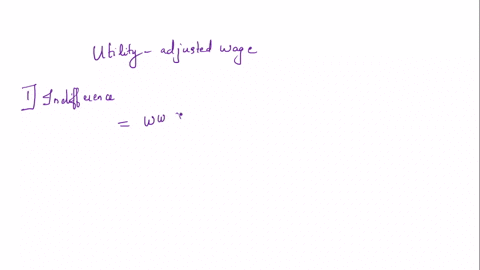 Utility - adjusted wage
1] Indifference
= WW